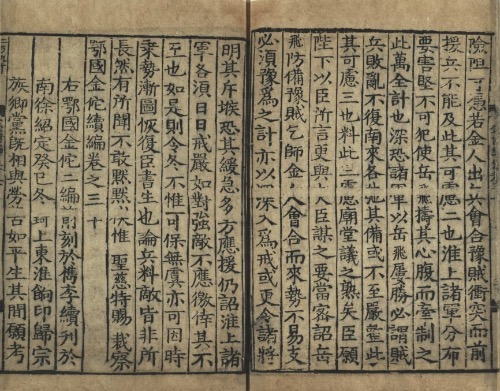 險阻可慮若金人出會合豫賊衝突而前
援兵不能及此其可慮二也淮上諸軍分布
要害堅不可犯使岳飛擣其心腹而牽制之
此萬全計也深恐諸軍以岳飛屢勝必謂賊
兵敗亂不復南來各弛其備或不至嚴整此
其可慮三也料此三慮廟堂議之熟矣臣願
陛下以臣所言更與大臣謀之要當密詔岳
飛防備豫賊乞師金人會合而來勢不易支
必須豫為之計亦以深入為戒或更令諸將
明其斥堠恐其緩急多方應援仍詔淮上諸
軍各須日日戒嚴如對強敵不應徼倖其不
至也如是則今冬不惟可保無虞亦可因時
乘勢漸圖恢復臣書生也論兵料敵皆非所
長然有所聞不敢默默伏惟 聖慈特賜裁察
鄂國金佗續編卷之三十
右鄂國金佗二編前刻於檇李續刻於
南徐紹定癸巳冬 珂上東淮餉印歸宗
族卿黨既相與勞苦如平生其間願考